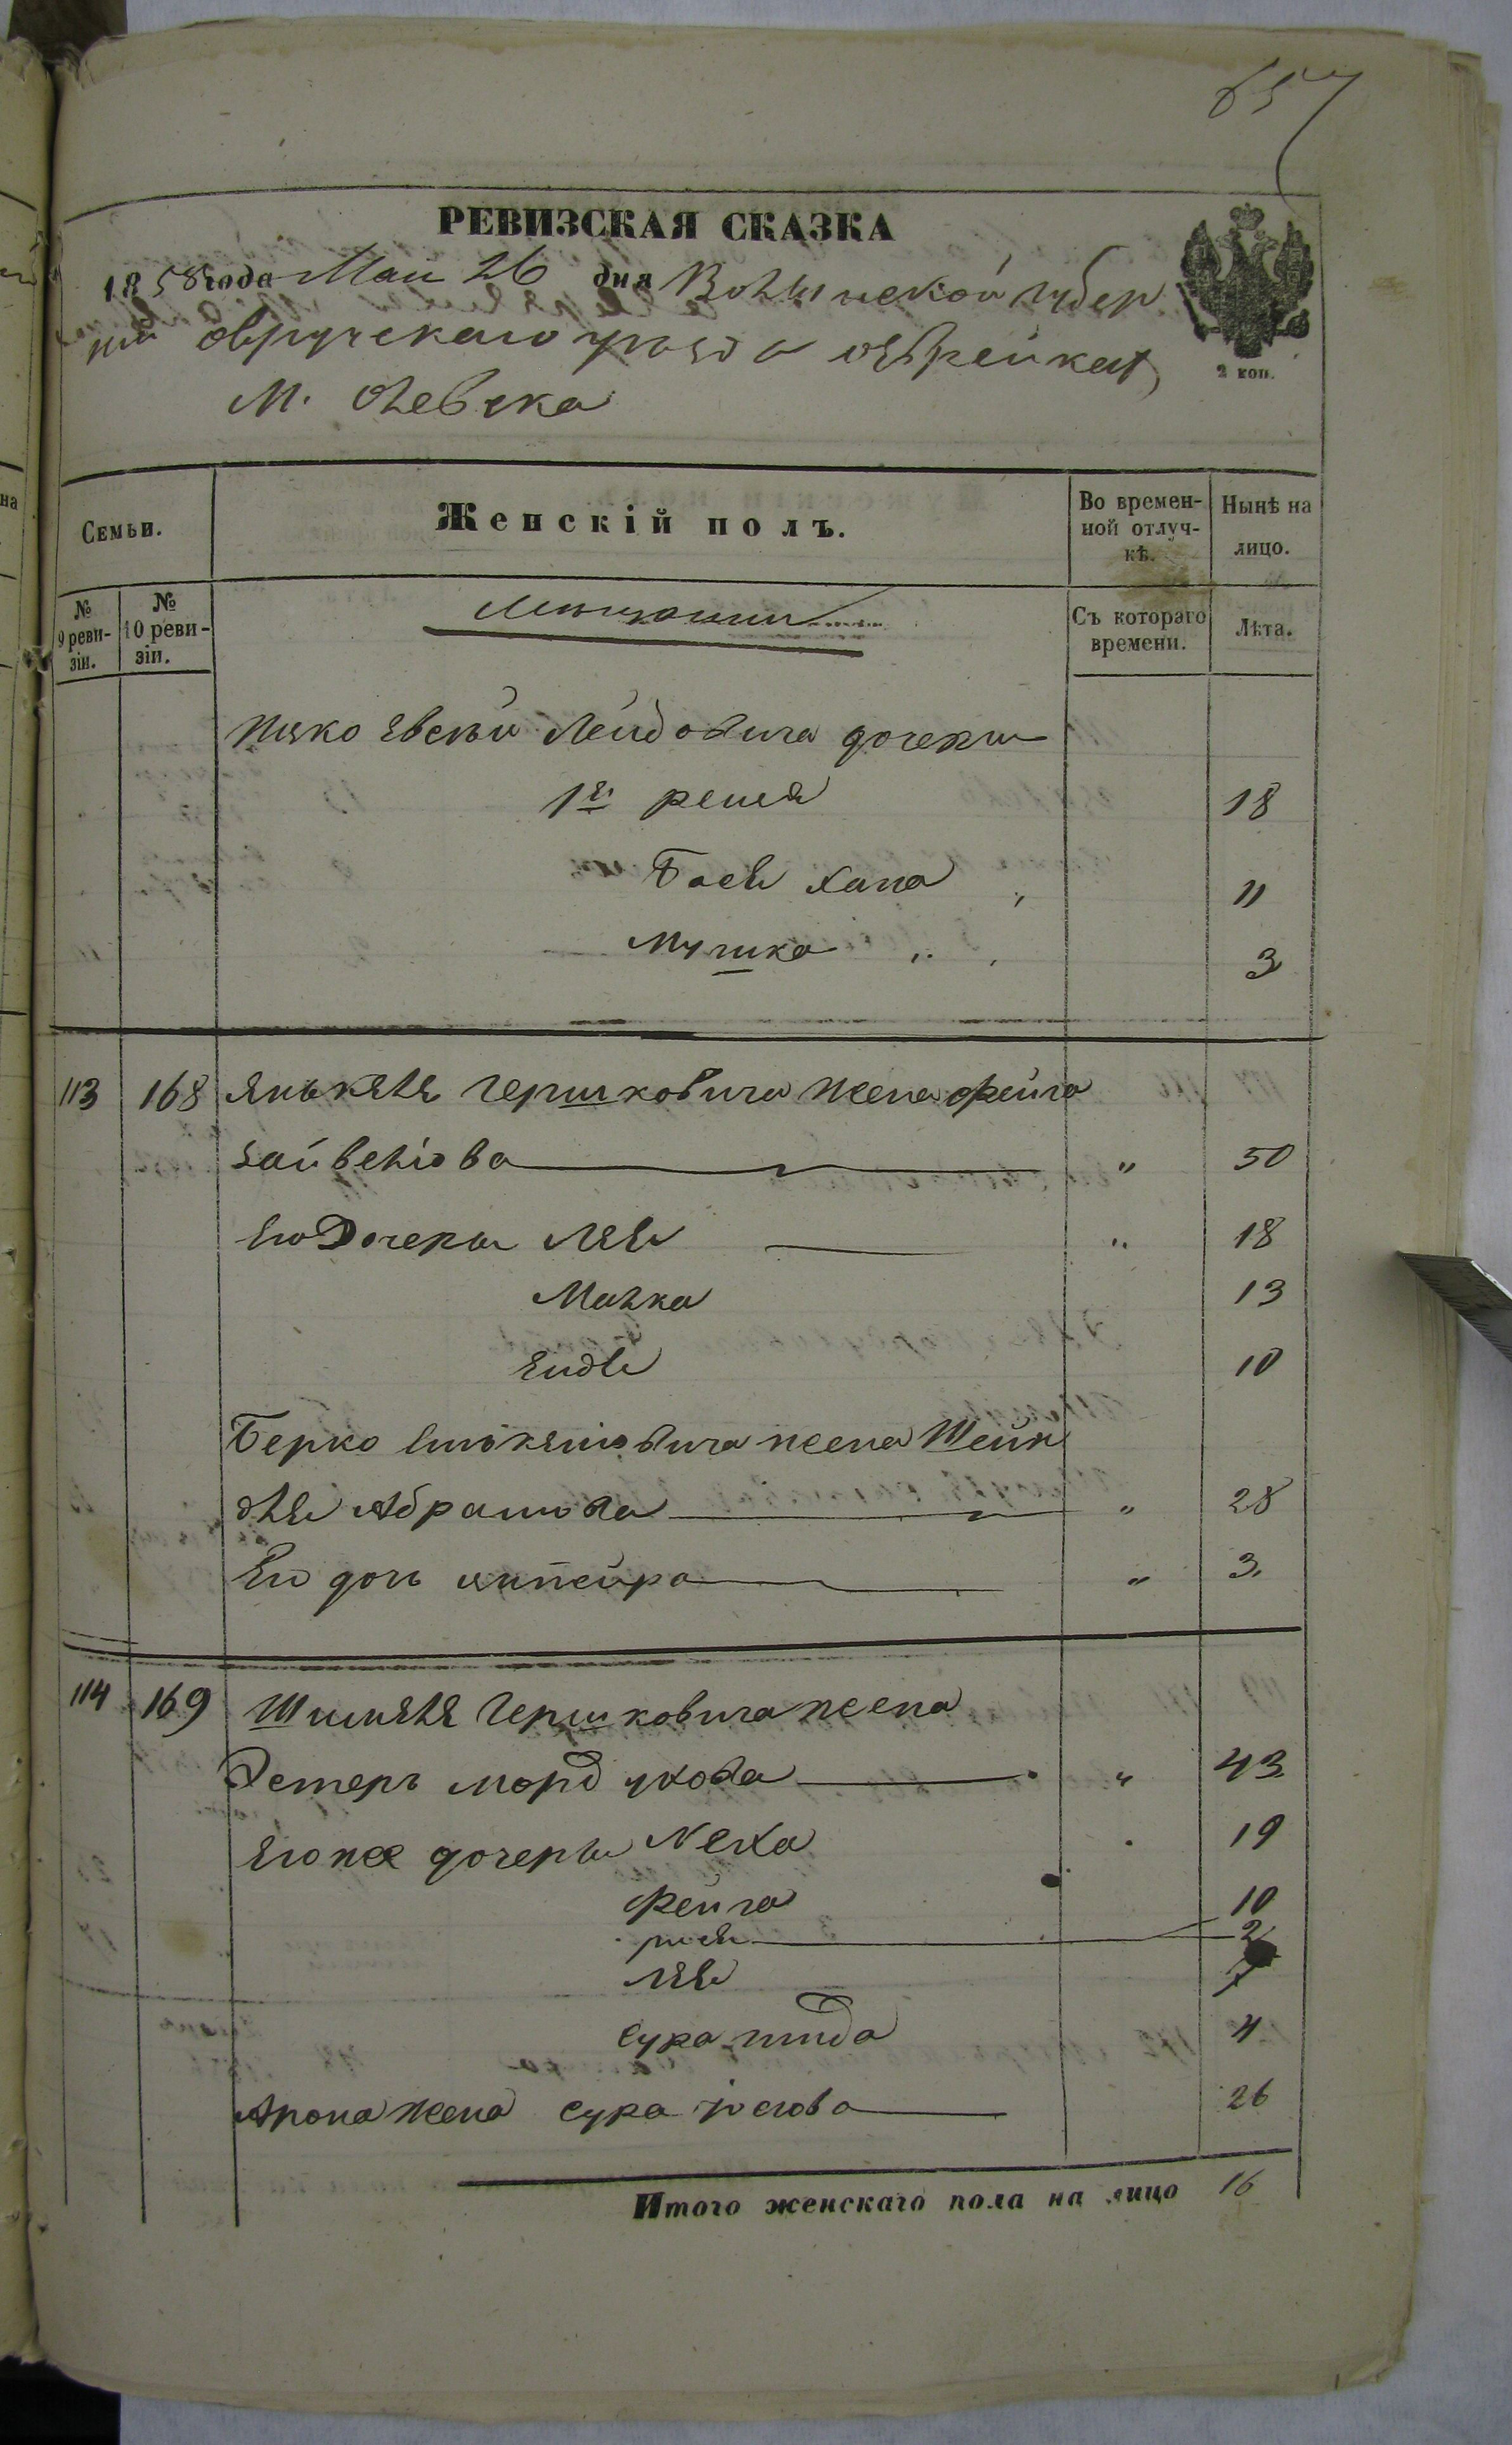 657
РЕВИЗСКАЯ СКАЗКА
1858 года Маи 26 дня Волынской губер
нии овручскаго уезда о евреикат
М. Олевска
Семьи.
Женскій полъ.
Во времен-
ной отлуч-
кѣ.
Нынѣ на
лицо.
№
9 реви-
зіи.
№
10 реви-
зіи.
Мещанки
Съ котораго
времени.
Лѣта.
Ицко Лейбовича дочери
1я рейзя 18
Бася хана „ 11
Мушка „ „ 3
113 168 Янькеля Гершковича жена фейга
Зайвеліова „ 50
Его Дочери Лея „ 18
Малка 13
Ендля 10
Берко жена Шейн
для Абрамова „ 28
Его дочь 3.
114 169 Шимеля Гершковича жена
Эстеръ мордухова „ 43
Его же дочери Неха 19
Фейга 10
2
Лея 7
Сура 4
Арона жена Сура 26
Итого женскаго пола на лицо 16